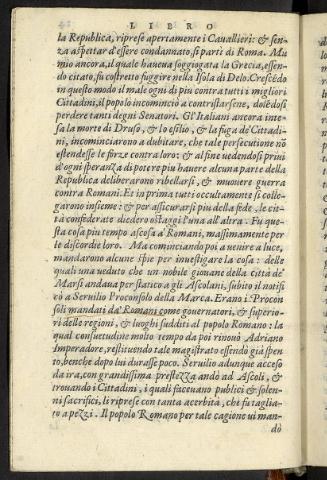 LIBRO
la Republica, riprese apertamente i Cavallieri: & sen-
za aspettar d'essere condannato, si partì di Roma. Mu
mio ancora, il quale haueua soggiogata la Grecia, essen-
do citato, fu costretto fuggire nella Isola di Delo. Crescēdo
in questo modo il male ogni dì piu contra tutti i migliori
Cittadini, il popolo incominciò a contristarsene, dolēdosi
perdere tanti degni Senatori. Gl'Italiani ancora inte-
sa la morte di Druso, & lo esilio, & la fuga de' Cittadi-
ni, incominciarono a dubitare, che tale persecutione nō
estendesse le forze contra loro: & al fine uedendosi priui
d'ogni speranza di potere piu hauere alcuna parte della
Republica deliberarono ribellarsi, & muouere guerra
contra Romani. Et in prima tutti occultamente si collo-
garono insieme: & per assicurarsi piu della fede, le cit-
tà confederate diedero ostaggi l'una all'altra. Fu que-
sta cosa piu tempo ascosa a' Romani, massimamente per
le discordie loro. Ma cominciando poi a uenire a luce,
mandarono alcune spie per inuestigare la cosa: delle
quali una ueduto che un nobile giouane della città de'
Marsi andaua per statico a gli Ascolani, subito il notifi
cò a Seruilio Proconsolo della Marca. Erano i Procon
soli mandati da' Romani come gouernatori, & superio-
ri delle regioni, & luoghi sudditi al popolo Romano: la
qual consuetudine molto tempo da poi rinouò Adriano
Imperadore, restituendo tale magistrato essendo già spen
to, benche dopo lui durasse poco. Seruilio adunque acceso
da ira, con grandissima prestezza andò ad Ascoli, &
trouando i Cittadini, i quali faceuano publici & solen-
ni sacrifici, li riprese con tanta acerbità, che fu taglia-
to a pezzi. Il popolo Romano per tale cagione ui man-
dò